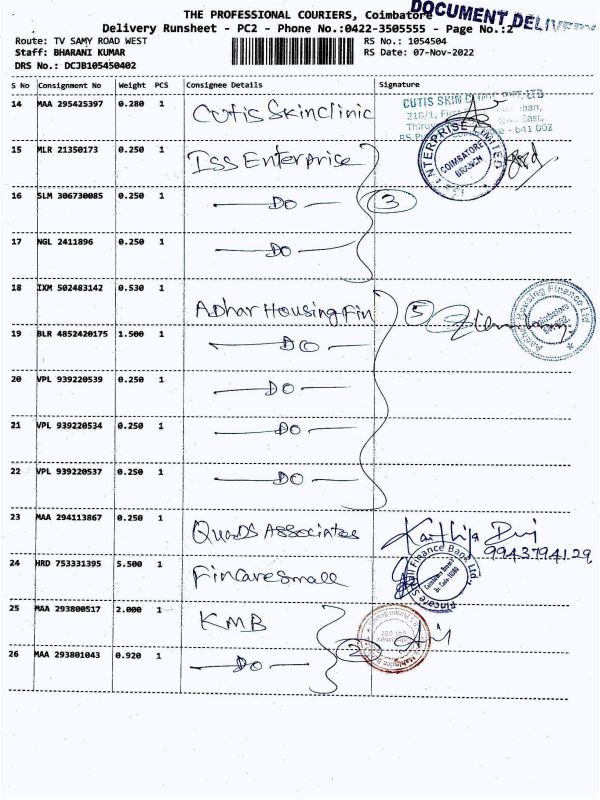 DOCUMENT DELIVERY
THE PROFESSIONAL COURIERS, Coimbatore
Delivery Runsheet - PC2 - Phone No.:0422-3505555 - Page No.:2
Route: TV SAMY ROAD WEST RS No.: 1054504
Staff: BHARANI KUMAR RS Date: 07-Nov-2022
DRS No.: DCJB105450402
S No Consignment No Weight PCS Consignee Details Signature
14 MAA 295425397 0.280 1 Cutis Skin Clinic
CUTIS SKIN
210/1,
East,
- 641 002
15 MLR 21350173 0.250 1 ISS Enterprise
ENTERPRISE LIMITED
COIMBATORE
BRANCH
16 SLM 306730085 0.250 1 DO 3
17 NGL 2411896 0.250 1 DO
18 IXM 502483142 0.530 1 Adhar Housing Fin 5
Housing Finance Ltd
19 BLR 4852420175 1.500 1 DO
20 VPL 939220539 0.250 1 DO
21 VPL 939220534 0.250 1 DO
22 VPL 939220537 0.250 1 DO
23 MAA 294113867 0.250 1 Quads Associates
9943794129
24 HRD 753331395 5.500 1 Fincare small
Fincare Small Finance Bank Ltd.
25 MAA 293800517 2.000 1 KMB 2
26 MAA 293801043 0.920 1 DO